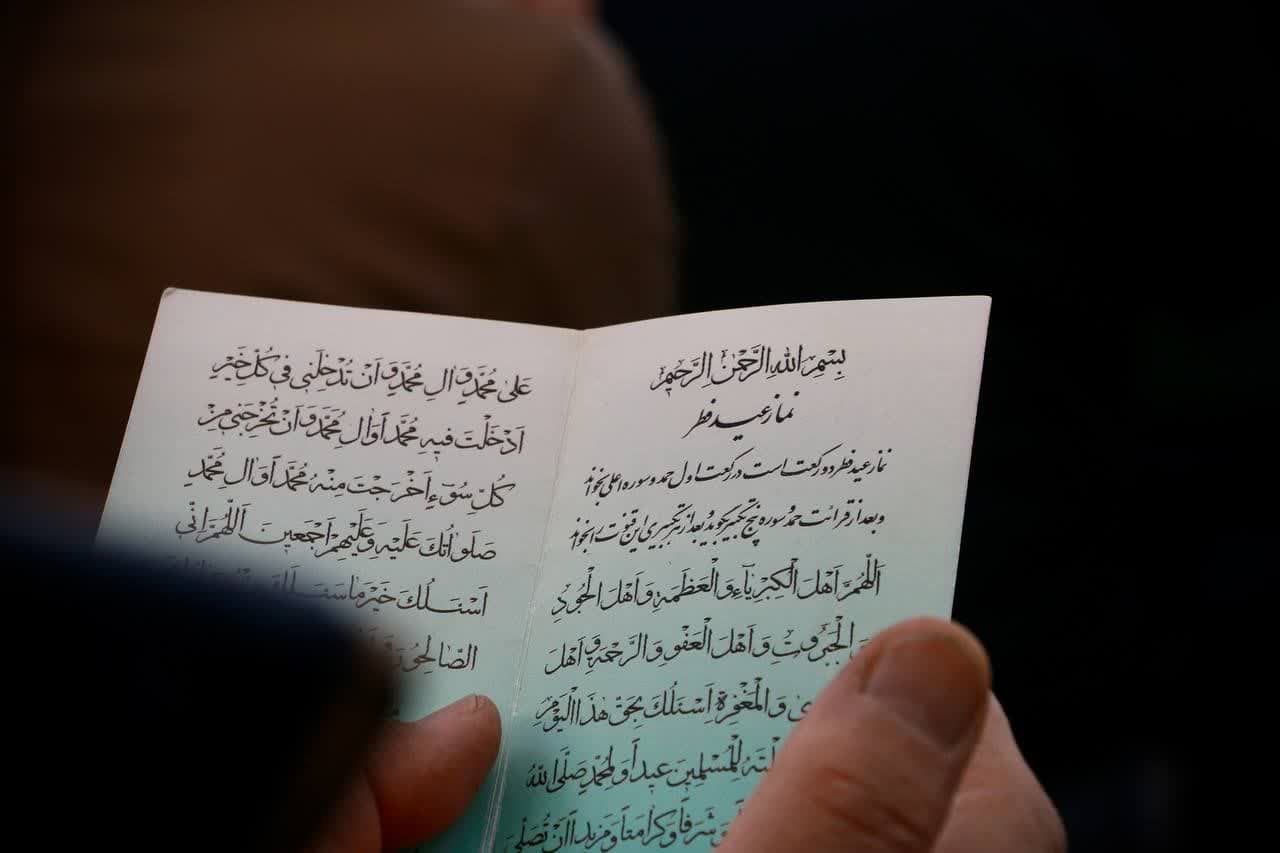 بِسْمِ اللهِ الرَّحْمٰنِ الرَّحيٖمِ
نماز عید فطر
نماز عید فطر دو رکعت است در رکعت اول حمد و سوره اعلی بخواند
و بعد از قرائت حمد و سوره پنج تکبیر بگوید و بعد از هر تکبیری این قنوت را بخواند
اَللّٰهُمَّ اَهْلَ الْكِبْرِيٰاۤءِ وَالْعَظَمَةِ وَاَهْلَ الْجُودِ
الْجَبَرُوتِ وَ اَهْلَ الْعَفْوِ وَالرَّحْمَةِ وَ اَهْلَ
وَالْمَغْفِرَةِ اَسْئَلُكَ بِحَقِّ هٰذَا الْيَوْمِ
لِلْمُسْلِمينَ عيداً وَلِمُحَمَّدٍ صَلَّى اللّٰهُ
وَ شَرَفاً وَكَرامَتاً وَمَزيداً اَنْ تُصَلِّيَ
عَلىٰ مُحَمَّدٍ وَ اٰلِ مُحَمَّدٍ وَ اَنْ تُدْخِلَني في كُلِّ خَيْرٍ
اَدْخَلْتَ فيهِ مُحَمَّداً وَ اٰلَ مُحَمَّدٍ وَ اَنْ تُخْرِجَني مِنْ
كُلِّ سُوۤءٍ اَخْرَجْتَ مِنْهُ مُحَمَّداً وَ اٰلَ مُحَمَّدٍ
صَلَواتُكَ عَلَيْهِ وَعَلَيْهِمْ اَجْمَعينَ اَللّٰهُمَّ اِنّي
اَسْئَلُكَ خَيْرَ مٰا سَئَلَكَ
الصّٰالِحُونَ